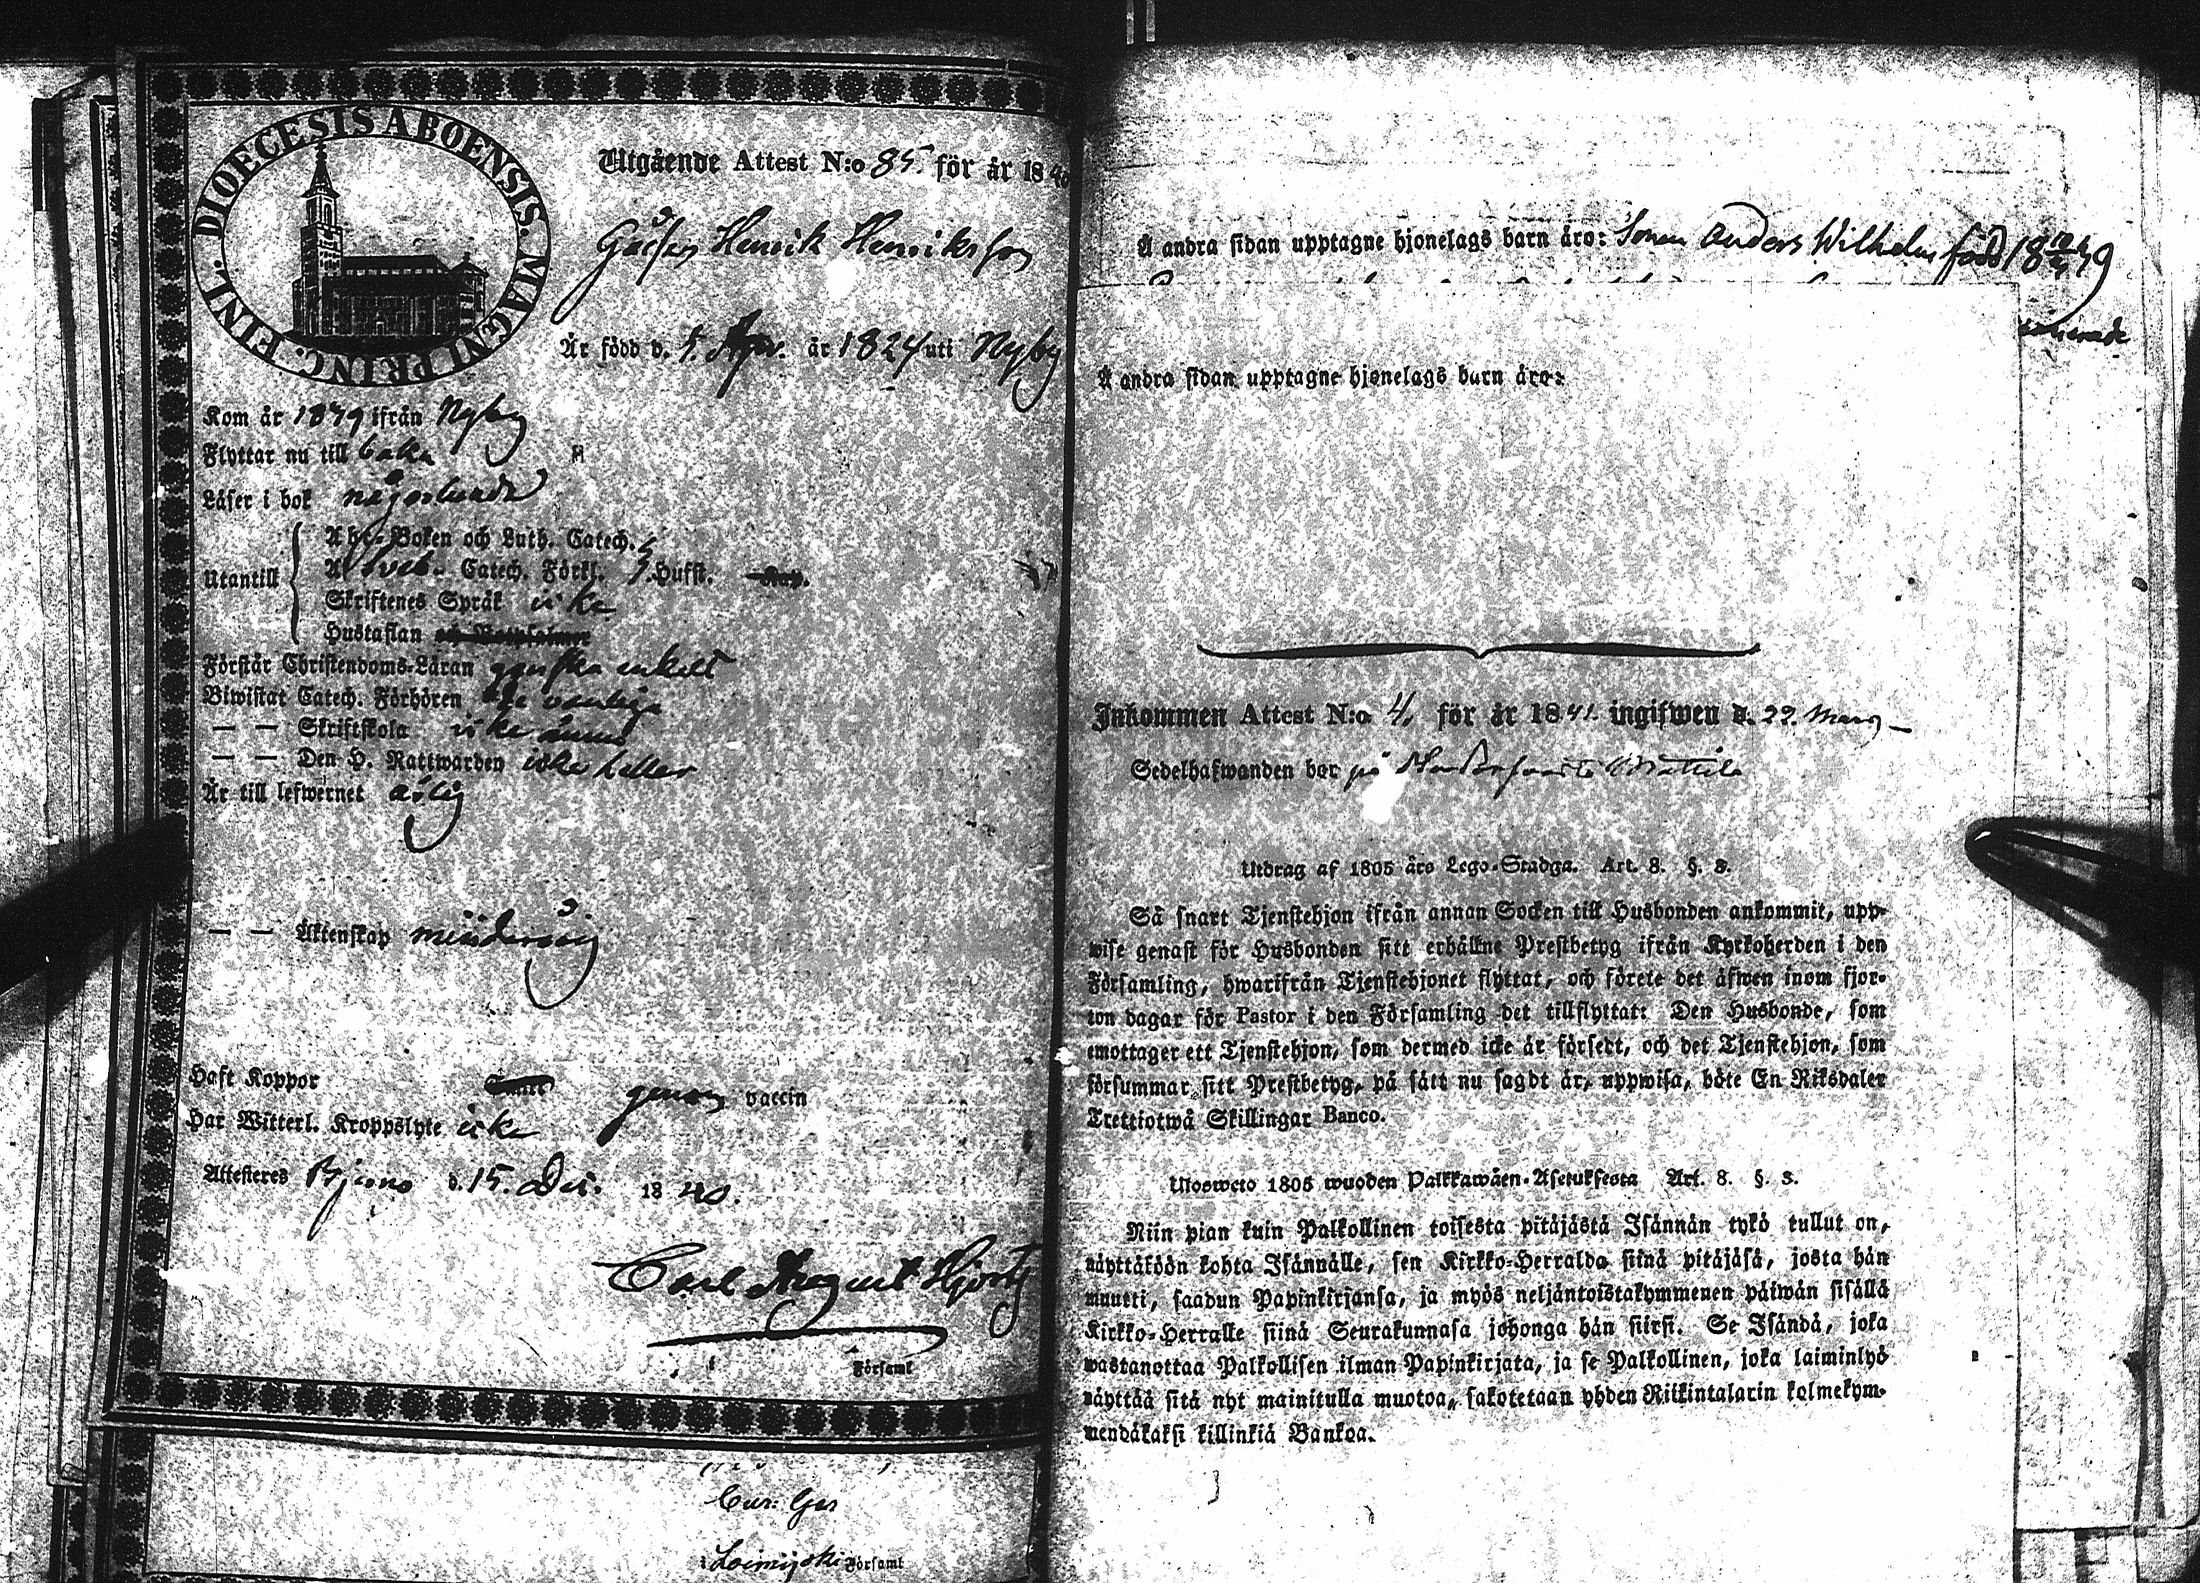 DIOECESIS ABOENSIS. MAGNI PRINC. FINL.
Utgående Attest N:o 85. för år 1840
Henrik Henriksson
Är född d. 5. Apr. år 1824 uti Nyby
Kom år 1839 ifrån Nyby
Flyttar nu till baka
Läser i bok någorlunda
Utantill
Abc-Boken och Luth. Catech.
Sveb. Catech. Förkl. 5. Hufst. Kap.
Skriftenes Språk icke
Hustaflan och Botpsalmer
Förstår Christendoms-Läran ganska enkelt
Biwistat Catech. Förhören
— — Skriftskola icke ännu
— — Den H. Nattwarden icke heller
Är till lefwernet ärlig
— — Äktenskap minderårig
Haft Koppor genom vaccin
Har Witterl. Kroppslyte icke
Attesteres Bjerno d. 15. Dec. 1840.
Carl August Hjort
Församl
Loimijoki Församl
Å andra sidan upptagne hjonelags barn äro: Sonen Anders Wilhelm född
Å andra sidan upptagne hjonelags barn äro:
Inkommen Attest N:o 4. för år 1841. ingifwen d. 22. Mars
Sedelhafwanden bor på
Utdrag af 1805 års Lego-Stadga. Art. 8. §. 3.
Så snart Tjenstehjon ifrån annan Socken till Husbonden ankommit, upp-
wise genast för Husbonden sitt erhållne Prestbetyg ifrån Kyrkoherden i den
Församling, hwarifrån Tjenstehjonet flyttat, och förete det äfwen inom fjor-
ton dagar för Pastor i den Församling det tillflyttat: Den Husbonde, som
emottager ett Tjenstehjon, som dermed icke är försedt, och det Tjenstehjon, som
försummar sitt Prestbetyg, på sätt nu sagdt är, uppwisa, böte En Riksdaler
Trettiotwå Skillingar Banco.
Ulosweto 1805 wuoden Palkkawäen-Asetuksesta Art. 8. §. 3.
Niin pian kuin Palkollinen toisesta pitäjästä Isännän tykö tullut on,
näyttäköön kohta Isännälle, sen Kirkko-Herralda siinä pitäjäsä, josta hän
muutti, saadun Papinkirjansa, ja myös neljäntoistakymmenen päiwän sisällä
Kirkko-Herralle siinä Seurakunnasa johonga hän siirsi. Se Isändä, joka
wastanottaa Palkollisen ilman Papinkirjata, ja se Palkollinen, joka laiminlyö
näyttää sitä nyt mainitulla muotoa, sakotetaan yhden Riikintalarin kolmekym-
mendäkaksi killinkiä Bankoa.